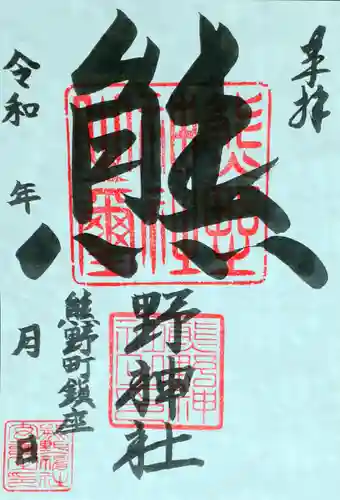 奉拝
熊
野神社
熊野町鎮座
令和 年
月
日